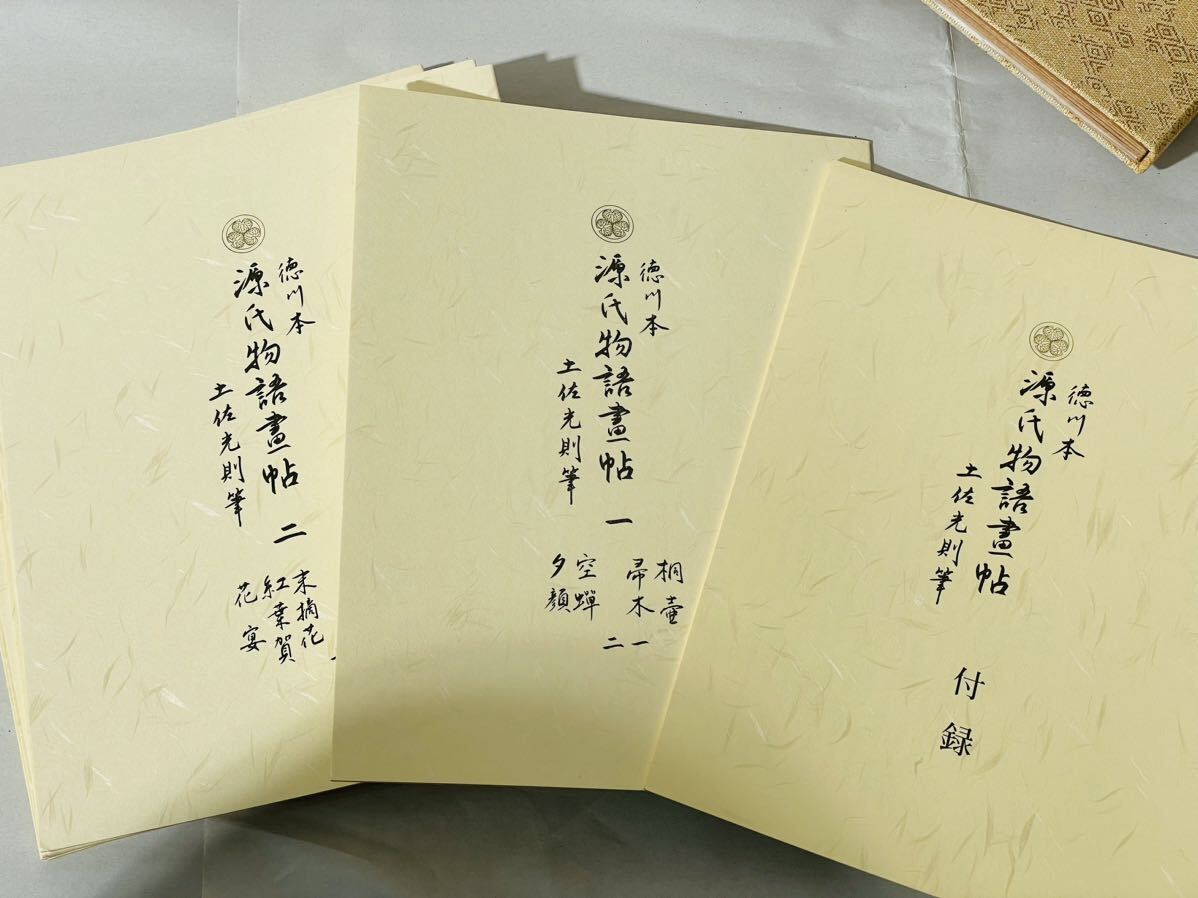 徳川本
源氏物語畫帖 二
土佐光則筆
末摘花
紅葉賀
花宴
徳川本
源氏物語畫帖 一
土佐光則筆
桐壺
帚木 一
二
空蟬
夕顔
徳川本
源氏物語畫帖
土佐光則筆
付録